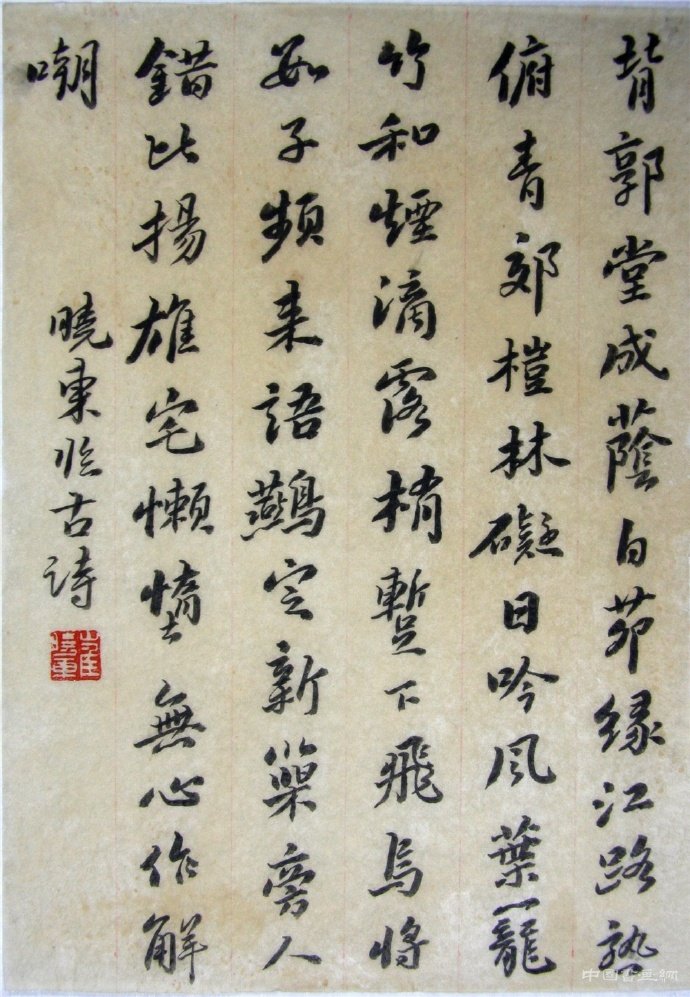 背郭堂成蔭白茆緣江路熟
俯青郊榿林礙日吟風葉籠
竹和煙滴露梢蹔下飛烏將
數子頻來語鷰定新巢旁人
錯比揚雄宅懶惰無心作解
嘲
曉東臨古詩
崔曉東
中国書畫網